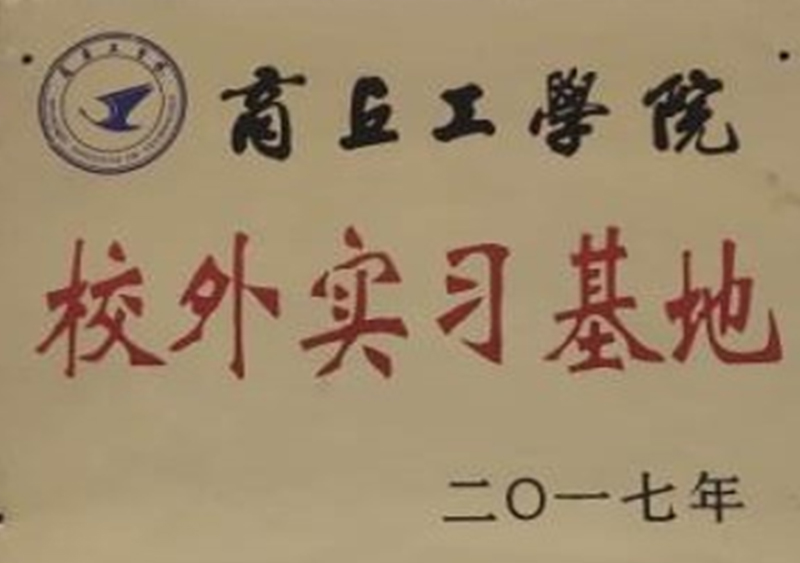 商丘工學院
校外实习基地
二〇一七年